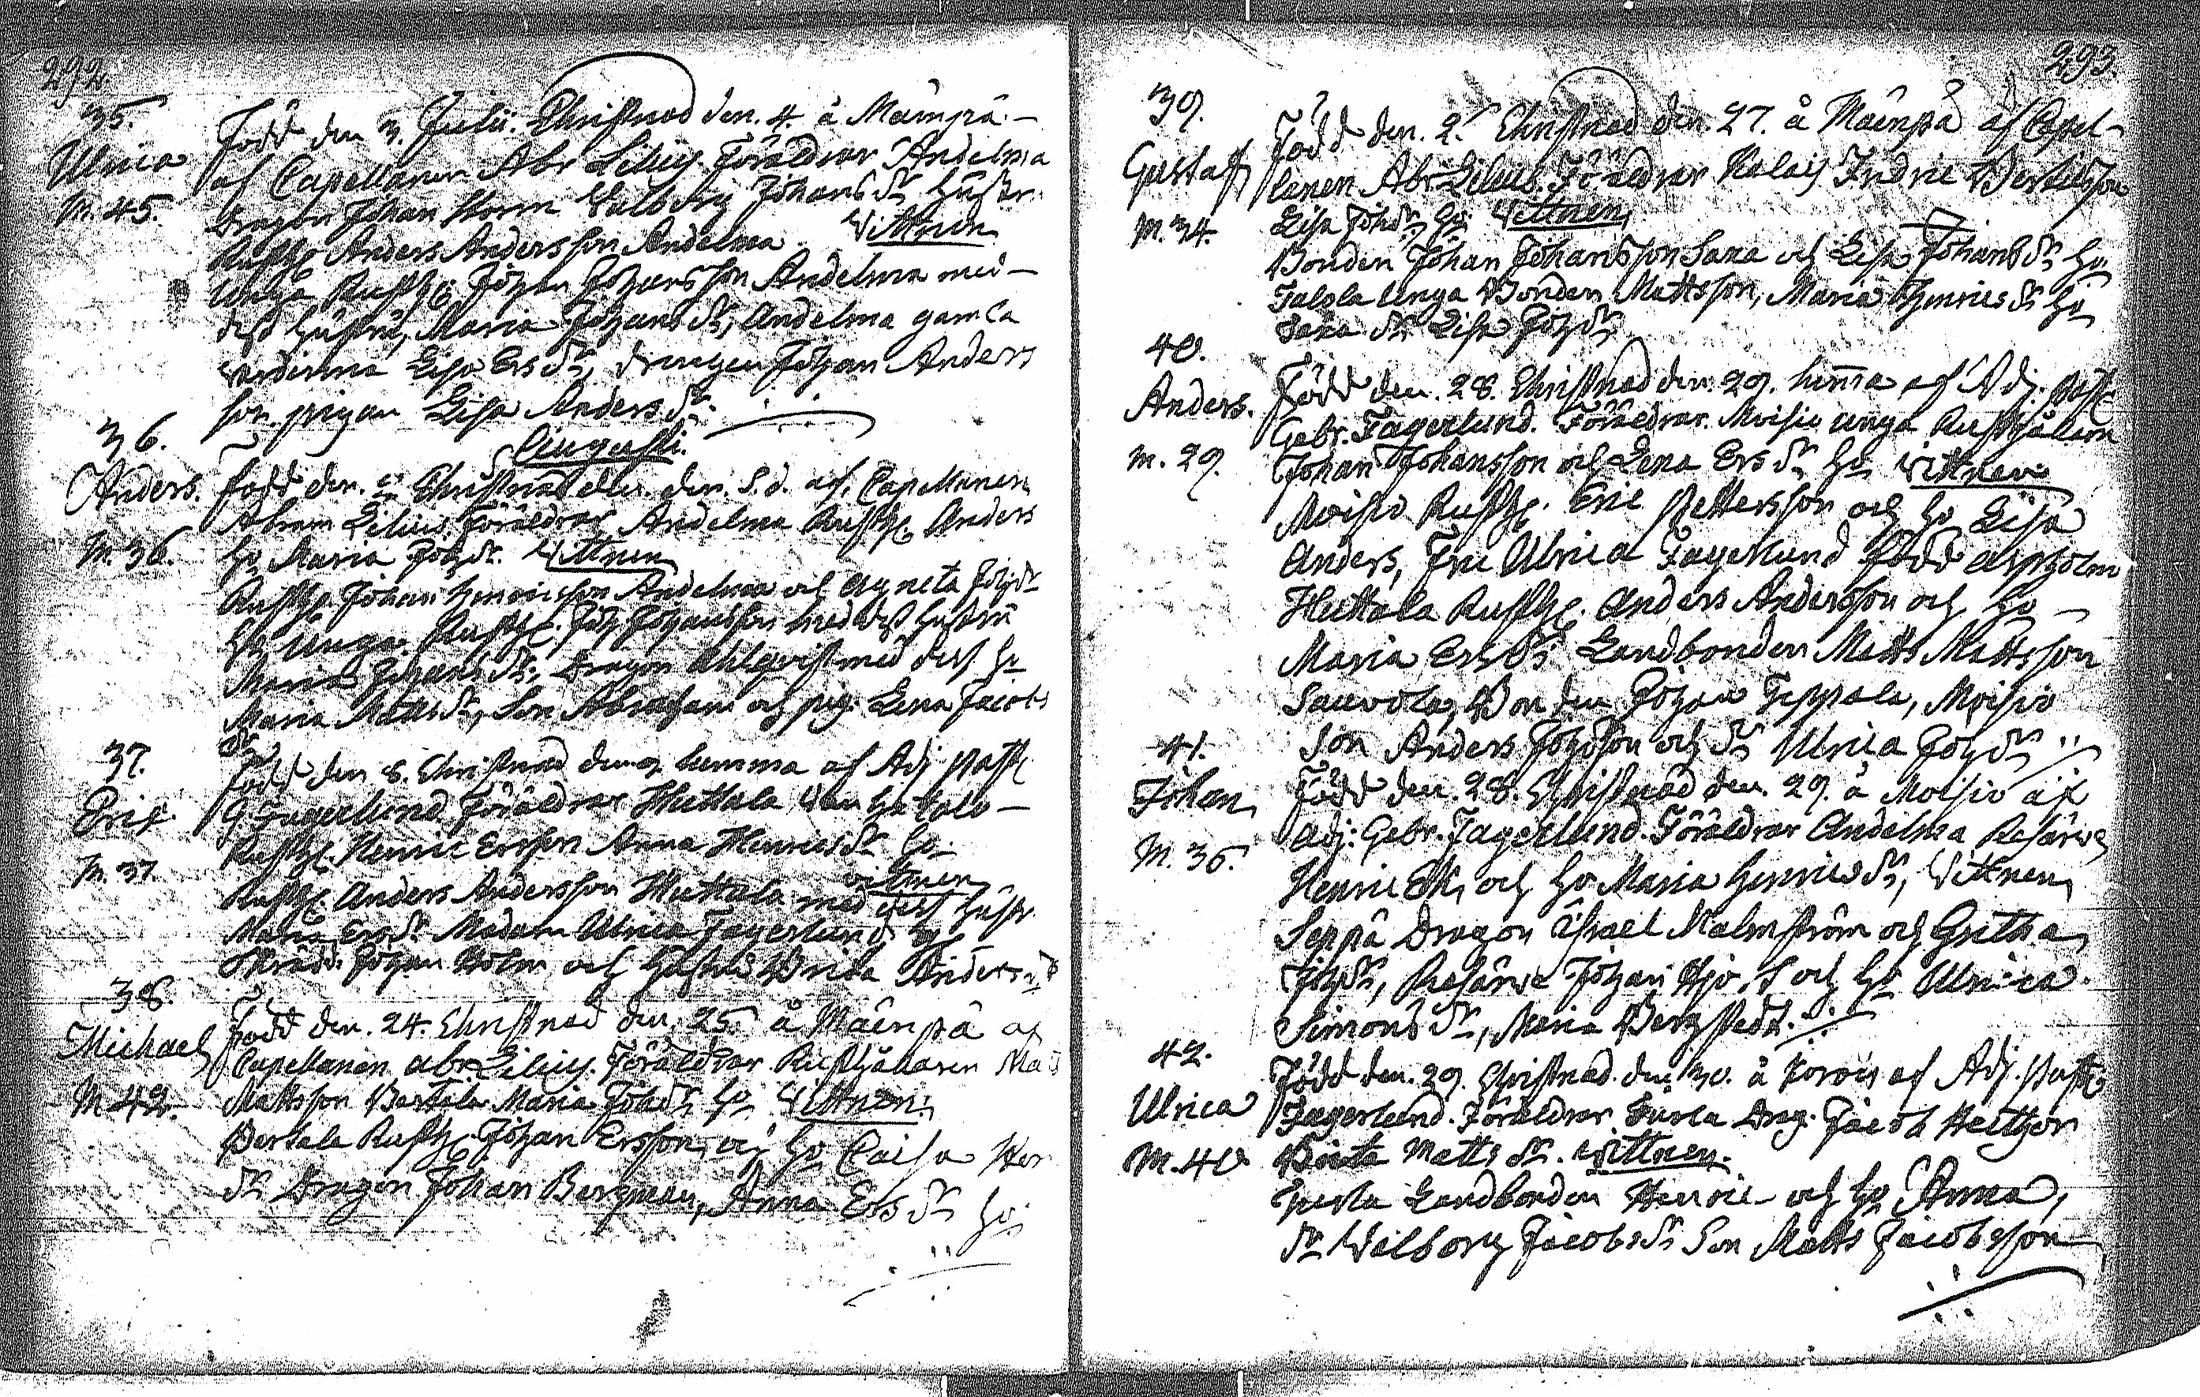 292.
35.
Ulrica
M. 45.
Född den 3. Julii. Christnad den. 4. å Mäinpä
af Capellanen Abr Lilius. Föräldrar Andelma
Dragon Johan Storm Walborg Johans dr hustr.
Rusth. Anders Andersson Andelma Wittnen
Unga Rusth. Johan Johansson Andelma med
dess hustru, Maria Johans dr, Andelma gamla
värdinna Lisa Ers dr, drengen Johan Anders
son, pigan Lisa Anders dr.
Augusti.
36.
Anders.
M. 36.
Född den. Christnad den. s.d. af. Capellanen
Abram Lilius. Föräldrar Andelma Rusth. Anders
ho Maria Joh dr. Wittnen
Rusth. Johan Henricsson Andelma och Agneta Joh dr
Unga Rusth. Joh Johansson med dess hustru
Maria Johans dr, Dragon Ahlqvist med dess ho
Maria Matts dr, Son Abraham och pig. Lena Jacobs
dr
37.
Eric
M. 37.
Född den 8. Christnad den 9 hemma af Adj. Past.
G Fagerlund. Föräldrar Huttala
Rusth. Henric Ersson Anna Henrics dr ho
Wittnen
Rusth. Anders Andersson Huttala med dess hustr.
Maria Ers dr Madam Ulrica Fagerlund
Johan Holm och hustru Brita Anders dr
38.
Michael
M 42.
Född den. 24. Christnad den 25. å Mäinpä af
Capellanen Abr Lilius. Föräldrar Rusthållaren
Mattsson Bertala Maria Joh dr ho Wittnen.
Bertala Rusth. Johan Ersson, och ho Caisa
dr Dragon Johan Bergman, Anna Ers dr ho
293.
39.
Gustaff
M. 34.
Född den. 2. Christnad den. 27. å Mäinpä af Capel-
lanen Abr Lilius. Föräldrar Indric Bertilsson
Lisa Joh dr, ho Wittnen
Bonden Johan Johansson Saxa och Lisa Johans dr ho
Talola Unga Bonden Mattsson, Maria Henrics dr ho
Saxa dr Lisa Joh dr
40.
Anders.
M. 29.
Född den. 28. Christnad den 29. hemma af Adj. Past.
Gebr. Fagerlund. Föräldrar. Moisio unga Rusthållaren
Johan Johansson och Lena Ers dr ho Wittnen
Moisio Rusth. Eric Pettersson och ho Lisa
Anders, Fru Ulrica Fagerlund född Aspholm
Huttala Rusth. Anders Andersson och ho
Maria Ers dr Landbonden Matts Mattsson
Sauvola, Bonden Johan Teppala, Moisio
Son Anders Johsson och dr Ulrica Joh dr
41.
Johan
M. 36.
Född den. 28. Christnad den. 29. å Moisio af
Adj: Gebr. Fagerlund. Föräldrar Andelma Resärv.
Henric Ek, och ho Maria Henrics dr, Wittnen
Seppä Dragon Israel Malmström och Gretha
Joh dr, Resärve Johan och ho Ulrica
Simons dr, Maria Bergstedt.
42.
Ulrica
M. 40
Född den. 29. Christnad. den 30. å Korois af Adj. Past.
Fagerlund. Föräldrar Turla Drag. Jacob
Brita Matts dr. Wittnen.
Turla Landbonden Henric och ho Anna,
dr Walborg Jacobs dr Son Matts Jacobsson